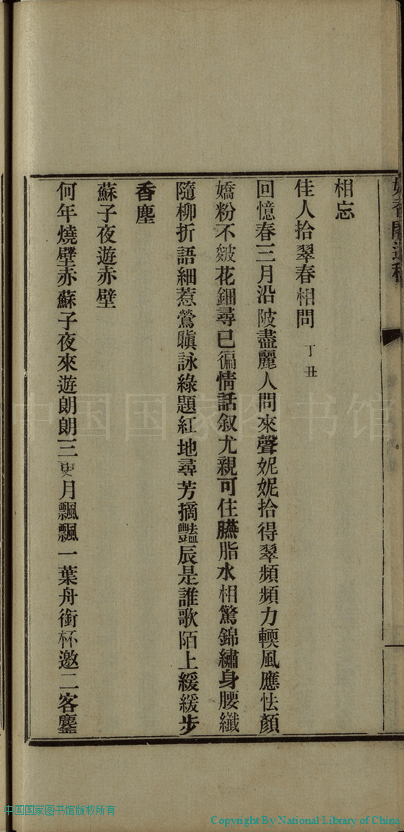 相忘
佳人拾翠春相問 丁丑
回憶春三月沿陂盡麗人問來聲妮妮拾得翠頻頻力輭風應怯顏
嬌粉不皴花鈿尋已徧情話叙尤親可住臙脂水相驚錦繡身腰纖
隨柳折語細惹鶯嗔詠綠題紅地尋芳摘豔辰是誰歌陌上緩緩步
香塵
蘇子夜遊赤壁
何年燒壁赤蘇子夜來遊朗朗三更月飄飄一葉舟銜杯邀二客鏖
中国国家图书馆
中国国家图书馆版权所有
Copyright By National Library of China